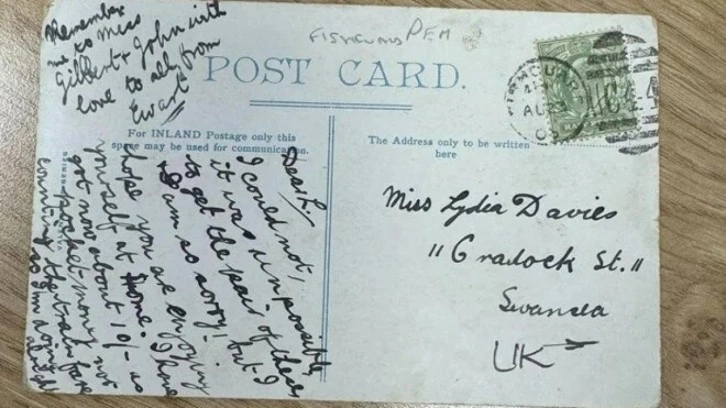 Remember
me to Miss
Gilbert & John with
love to all from
Ewart
FISHGUARD PEM
POST CARD.
For INLAND Postage only this
space may be used for communication.
The Address only to be written
here
FISHGUARD
AU
03
Dear L.
I could not,
it was impossible,
to get the pair of these
I am so sorry! but I
hope you are enjoying
yourself at home. I have
got now about 10/- as
pocket money not
counting the train fare
so I'm doing
alright
Miss Lydia Davies
11 Cradock St. 11
Swansea
UK